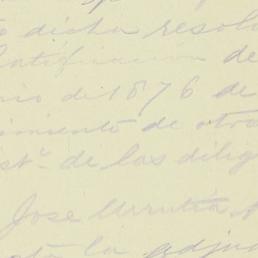 dicha resolu
ratificacion de
nio de 1876 de
imiento de otra
ist.ª de las dilig
Jose Urrutia
la adjud